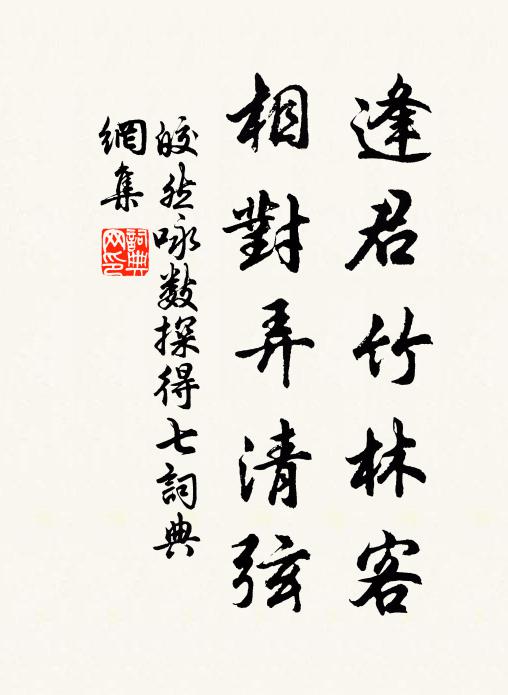 逢君竹林客
相對弄清弦
皎然咏數探得七詞典
網集
詞典
网印